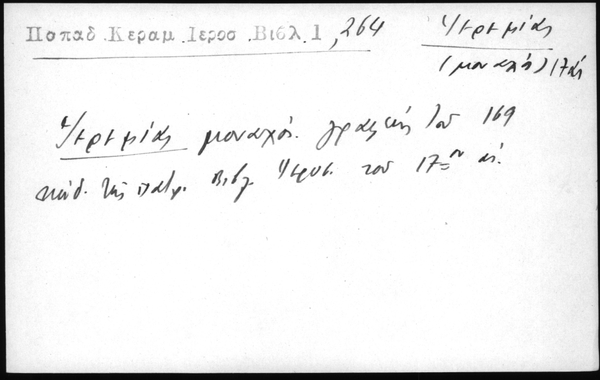 Παπαδ.Κεραμ.Ιεροσ.Βιβλ.1,264
Ἱερεμίας
(μοναχός) 17 αἰ
Ἱερεμίας μοναχός. γραφεύς τοῦ 169
κώδ. τῆς πατρ. βιβλ. Ἱεροσ. τοῦ 17ου αἰ.